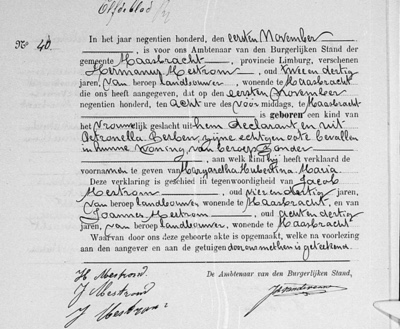 No. 40.
In het jaar negentien honderd, den eersten November
, is voor ons Ambtenaar van den Burgerlijken Stand der
gemeente Maasbracht, provincie Limburg, verschenen
Hermanus Mestrom, oud twee en dertig
jaren, van beroep landbouwer, wonende te Maasbracht
die ons heeft aangegeven, dat op den eersten November
negentien honderd, ten acht ure des voormiddags, te Maasbracht
is geboren een kind van
het vrouwelijk geslacht uit hem declarant en uit
Petronella Gerbens, zijne echtgenoote bevallen
in hunne woning, van beroep zonder
, aan welk kind hij heeft verklaard de
voornamen te geven van Margaretha Hubertina Maria
Deze verklaring is geschied in tegenwoordigheid van Jacob
Mestrom, oud vier en dertig jaren,
van beroep landbouwer, wonende te Maasbracht, en van
Joannes Mestrom, oud acht en dertig
jaren, van beroep landbouwer, wonende te Maasbracht
Waarvan door ons deze geboorte akte is opgemaakt, welke na voorlezing
aan den aangever en aan de getuigen door ons met hen is geteekend.
De Ambtenaar van den Burgerlijken Stand,
H Mestrom
J Mestrom
J Mestrom